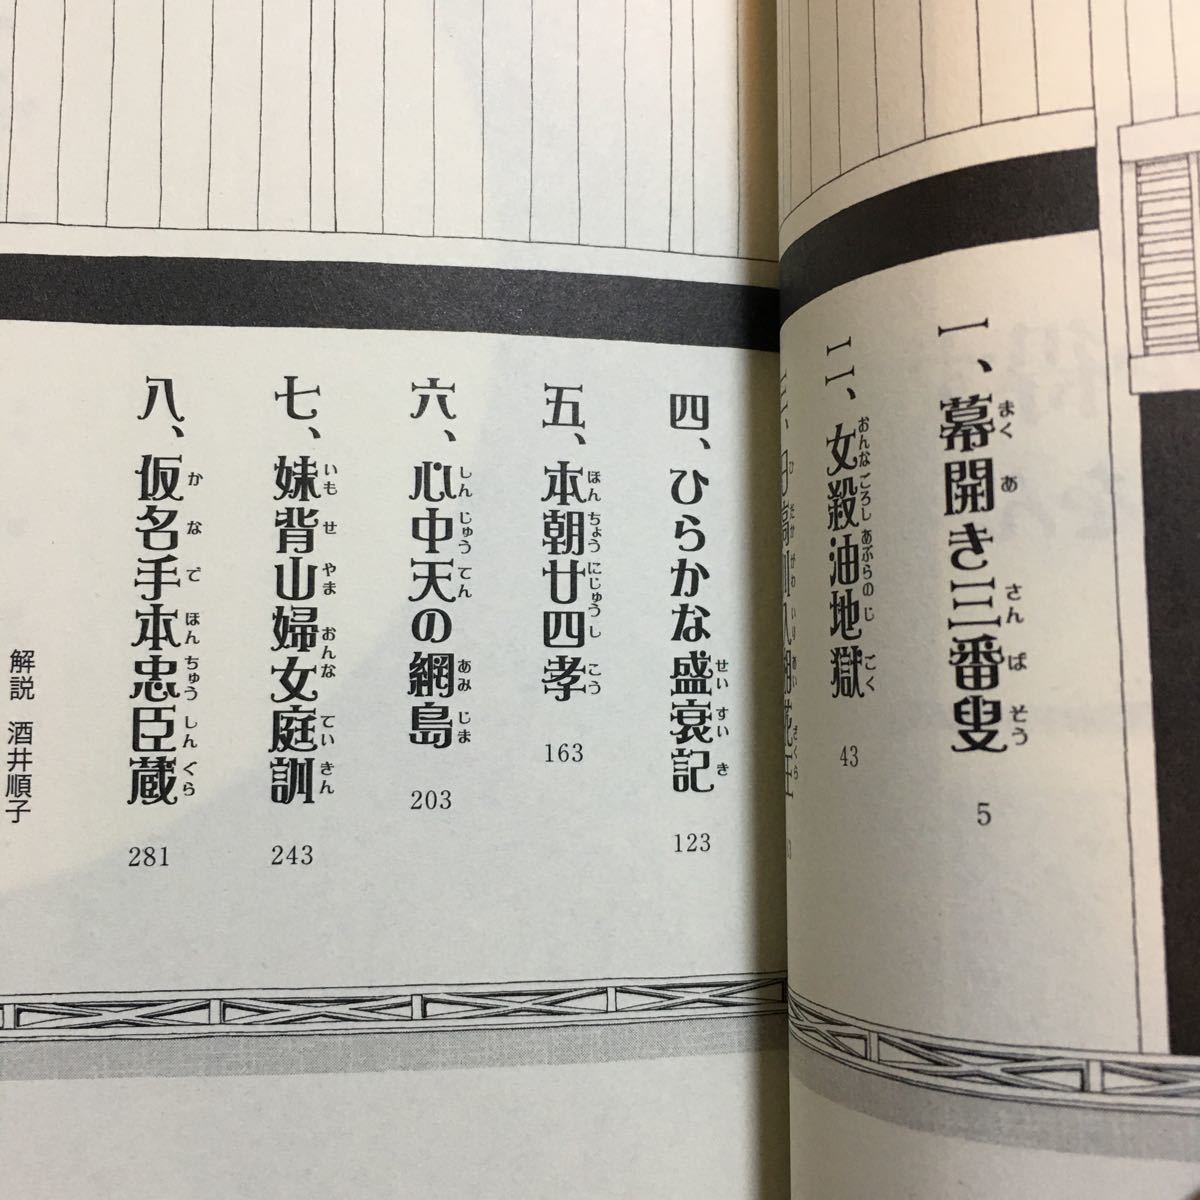 一、幕開き三番叟
まくあさんばそう
5
二、女殺油地獄
おんなごろしあぶらのじごく
43
四、ひらかな盛衰記
せいすいき
123
五、本朝廿四孝
ほんちょうにじゅうしこう
163
六、心中天の網島
しんじゅうてんあみじま
203
七、妹背山婦女庭訓
いもせやまおんなていきん
243
八、仮名手本忠臣蔵
かなでほんちゅうしんぐら
281
解説 酒井順子